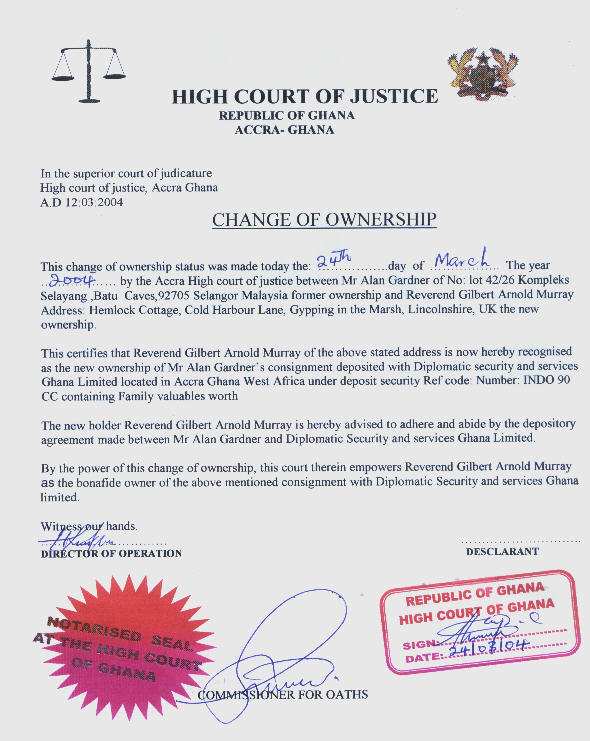 HIGH COURT OF JUSTICE
REPUBLIC OF GHANA
ACCRA- GHANA
In the superior court of judicature
High court of justice, Accra Ghana
A.D 12:03.2004
CHANGE OF OWNERSHIP
This change of ownership status was made today the: 24th ..............day of March... The year
..2004..... by the Accra High court of justice between Mr Alan Gardner of No: lot 42/26 Kompleks
Selayang ,Batu Caves,92705 Selangor Malaysia former ownership and Reverend Gilbert Arnold Murray
Address: Hemlock Cottage, Cold Harbour Lane, Gypping in the Marsh, Lincolnshire, UK the new
ownership.
This certifies that Reverend Gilbert Arnold Murray of the above stated address is now hereby recognised
as the new ownership of Mr Alan Gardner`s consignment deposited with Diplomatic security and services
Ghana Limited located in Accra Ghana West Africa under deposit security Ref code: Number: INDO 90
CC containing Family valuables worth
The new holder Reverend Gilbert Arnold Murray is hereby advised to adhere and abide by the depository
agreement made between Mr Alan Gardner and Diplomatic Security and services Ghana Limited.
By the power of this change of ownership, this court therein empowers Reverend Gilbert Arnold Murray
as the bonafide owner of the above mentioned consignment with Diplomatic Security and services Ghana
limited.
Witness our hands.
DIRECTOR OF OPERATION
DESCLARANT
NOTARISED SEAL
AT THE HIGH COURT
OF GHANA
COMMISSIONER FOR OATHS
REPUBLIC OF GHANA
HIGH COURT OF GHANA
SIGN:
DATE: 24/03/04